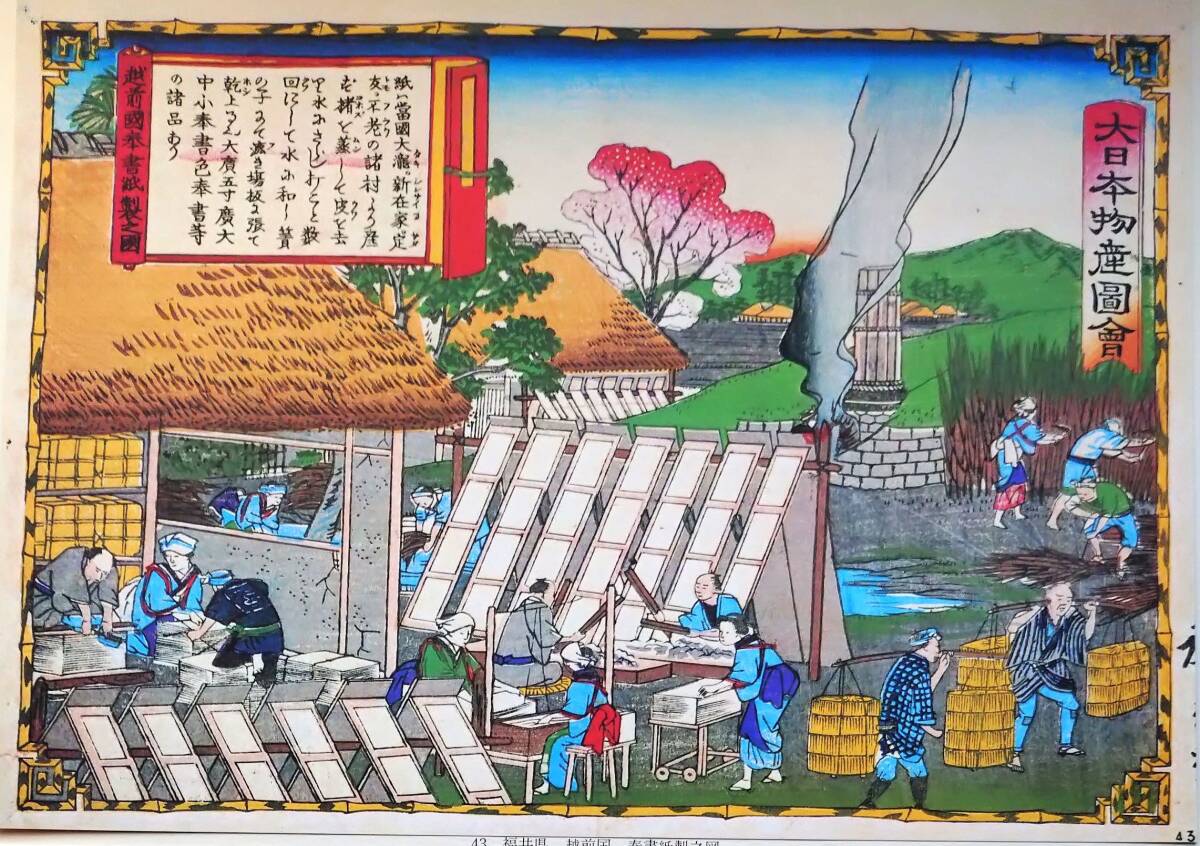 大日本物産圖會
越前國奉書紙製之圖
紙ハ當國大瀧新在家定
友不老の諸村より産
す楮を蒸して皮を去
り水にさらし打こと数
回にして水に和し簀
の子にて漉き場板に張て
乾上るなり大廣五寸廣大
中小奉書色奉書等
の諸品あり
43 福井県 越前国 奉書紙製之図
43